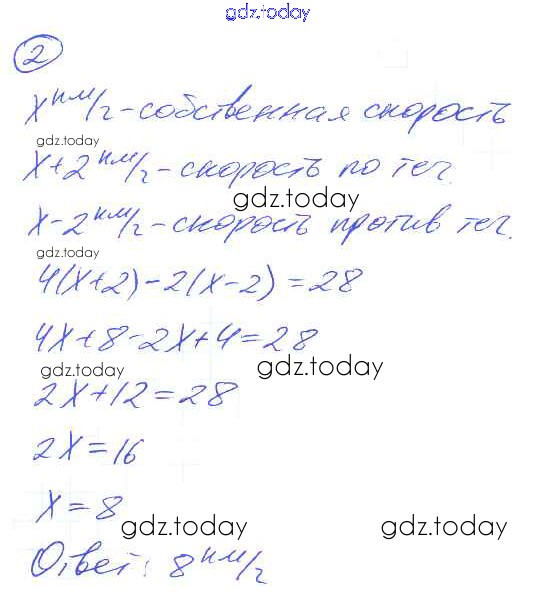 gdz.today
2
x км/г - собственная скорость
gdz.today
x+2 км/г - скорость по теч.
gdz.today
x-2 км/г - скорость против теч.
4(x+2)-2(x-2)=28
4x+8-2x+4=28
gdz.today gdz.today
2x+12=28
2x=16
x=8
gdz.today gdz.today
Ответ: 8 км/г